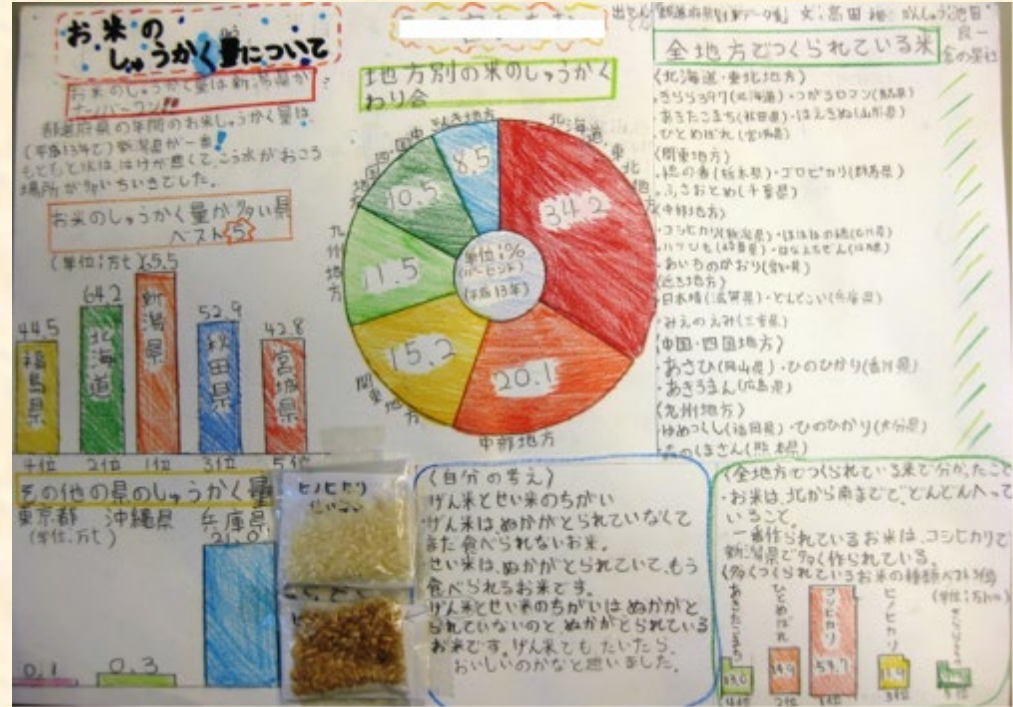 お米の
しゅうかく量について
お米のしゅうかく量は新潟県が
ナンバーワン!!
都道府県の年間のお米しゅうかく量は、
(平成13年で)新潟県が一番!
もともと水はけが悪くて、こう水がおこる
場所が多いちいきでした。
お米のしゅうかく量が多い県
ベスト5
(単位:万t)
65.5
64.2
52.9
44.5
42.8
福島県
北海道
新潟県
秋田県
宮城県
4位
2位
1位
3位
5位
その他の県のしゅうかく量
東京都 沖縄県 兵庫県
(単位:万t)
21.0
0.1
0.3
地方別の米のしゅうかく
わり合
北海道・東北地方
34.2
20.1
中部地方
15.2
関東地方
11.5
九州地方
10.5
8.5
単位:%
(パーセント)
(平成13年)
ヒノヒカリ
(自分の考え)
げん米とせい米のちがい
げん米はぬかがとられていなくて
まだ食べられないお米。
せい米は、ぬかがとられていて、もう
食べられるお米です。
げん米とせい米のちがいはぬかがと
られていないのと、ぬかがとられている
お米です。げん米でもたいたら、
おいしいのかなと思いました。
全地方でつくられている米
(北海道・東北地方)
・きらら397(北海道)・つがるロマン(青森県)
・あきたこまち(秋田県)・はえぬき(山形県)
・ひとめぼれ(宮城県)
(関東地方)
・ゴロピカリ(群馬県)
・ふさおとめ(千葉県)
(中部地方)
・コシヒカリ(新潟県)
・ハツシモ(岐阜県)
・あいちのかおり(愛知県)
(近き地方)
・日本晴(滋賀県)・どんとこい(兵庫県)
・みえのえみ(三重県)
(中国・四国地方)
・あさひ(岡山県)・ひのひかり(香川県)
・あきろまん(広島県)
(九州地方)
・ゆめつくし(福岡県)・ひのひかり(大分県)
(熊本県)
(全地方でつくられている米で分かったこと)
・お米は、北から南までで、どんどんへって
いること。
・一番作られているお米は、コシヒカリで
新潟県で多く作られている。
(多くつくられているお米の種類ベスト5位)
あきたこまち
ひとめぼれ
コシヒカリ
ヒノヒカリ
4位
2位
1位
3位
5位